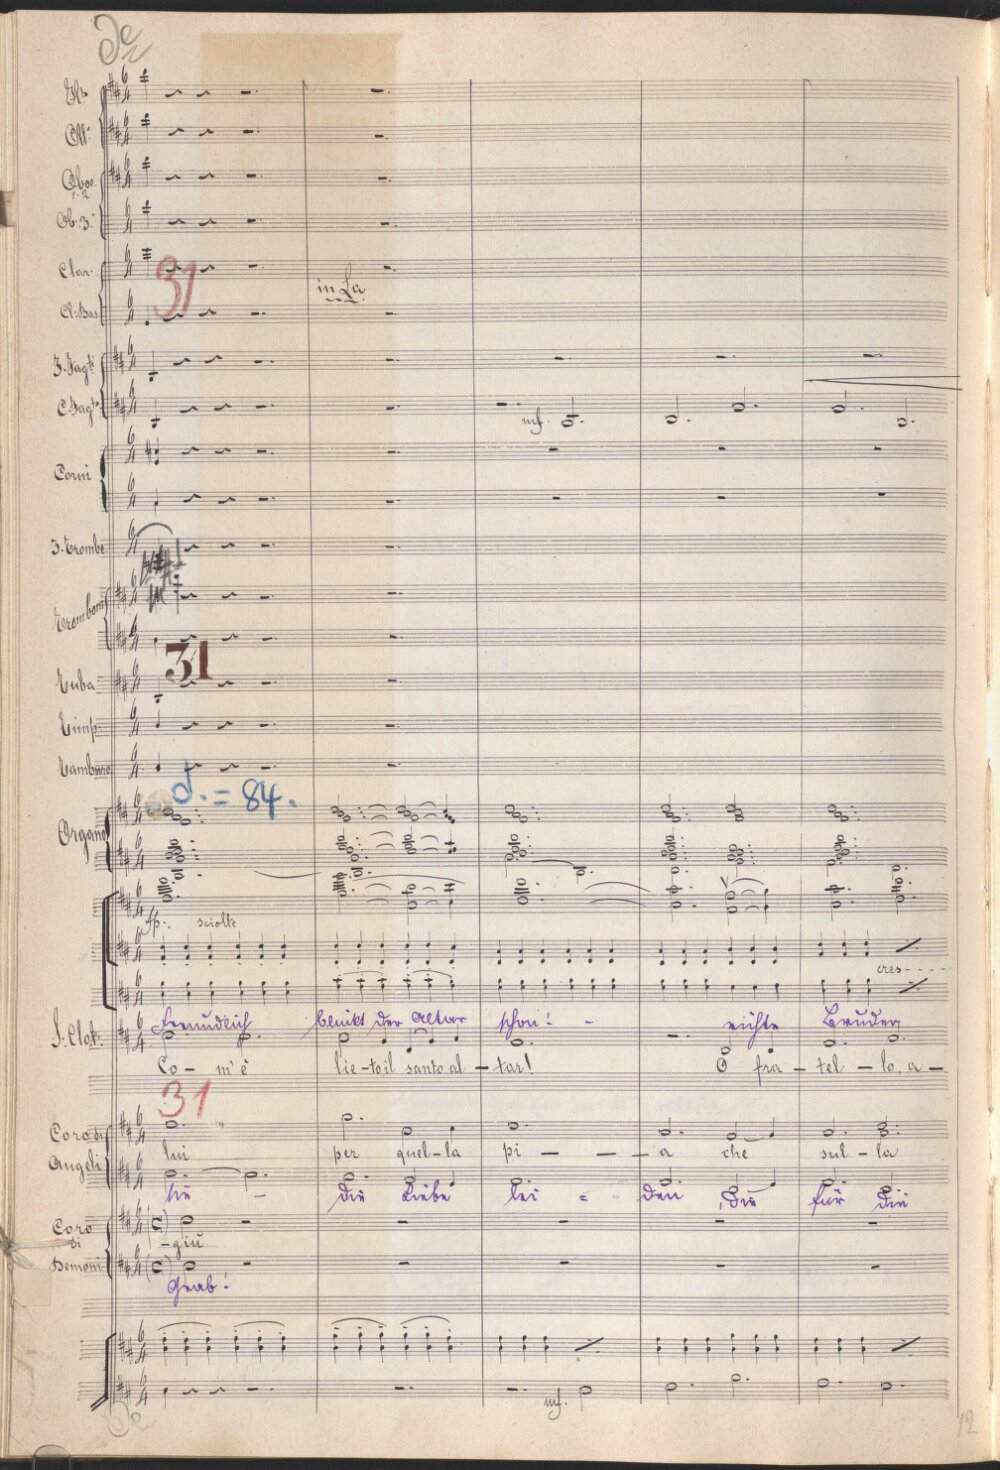 De
Ott:
Oboe 1.2
Ob. 3.
Clar.
31
in La
Cl. Bas.
3. Fagti
C. Fagto
mf.
Corni
3. Trombe
Tromboni
31
Tuba
Timp.
Tamburo
♩. = 84.
Organo
fp. sciolte
cres - - - -
freundlich blinkt der Altar schon! - richte Bruder
S. Clot.
Co - m'è lie - to il santo al - tar! O fra - tel - lo, a -
31
Coro di Angeli
lui per quel - la pi - - - a che sul - la
sie - die Liebe lei - - den, die für die
Coro di Demoni
- giù
Grab!
mf.
12